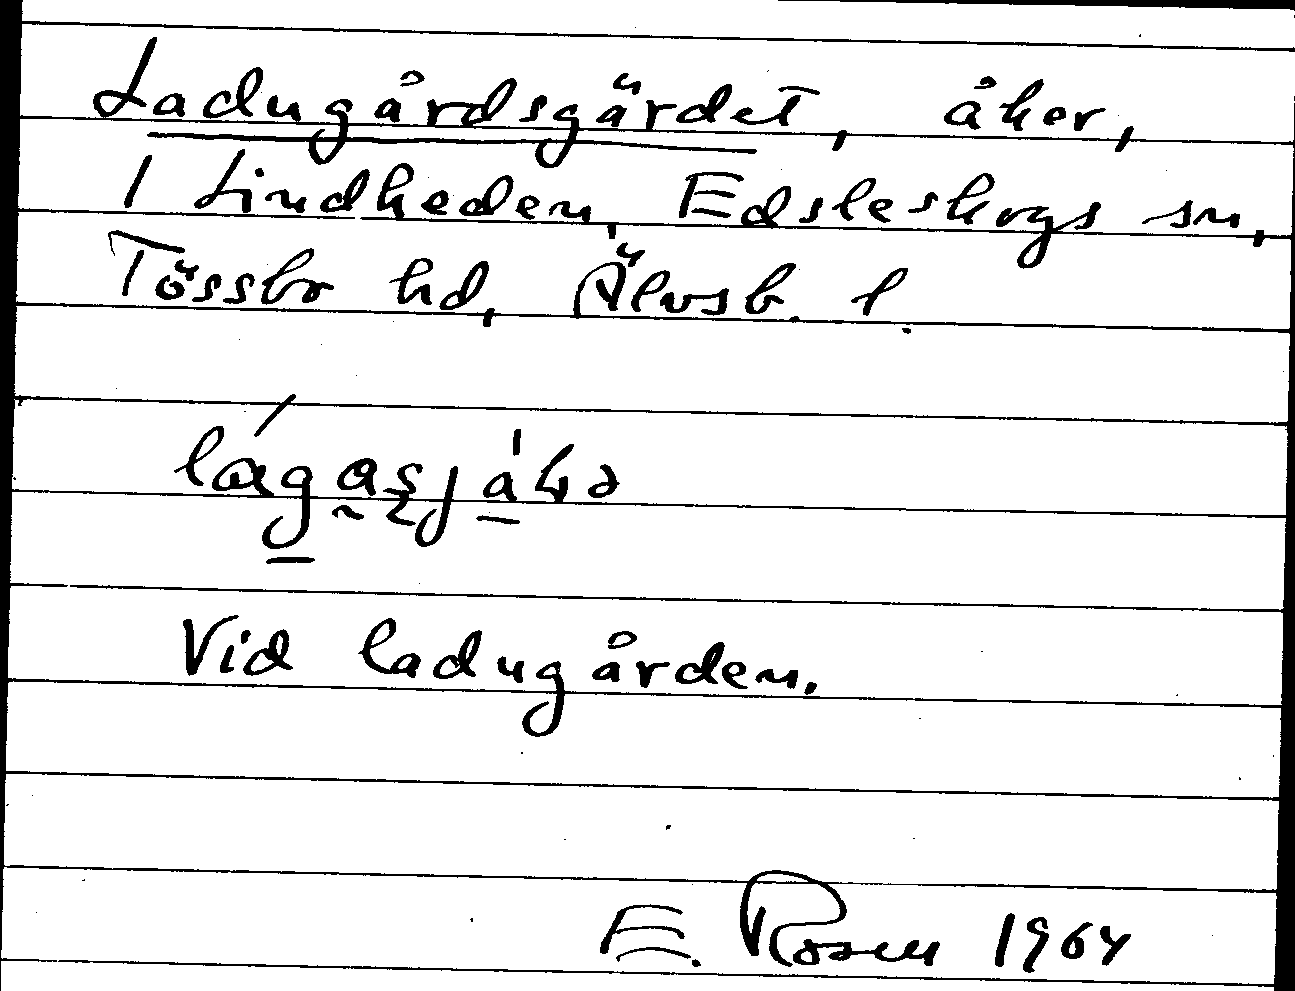 Ladugårdsgärdet, åker,
1 Lindheden, Edsleskogs sn,
Tössbo hd, Älvsb. l.
Vid ladugården.
E. Rosen 1964